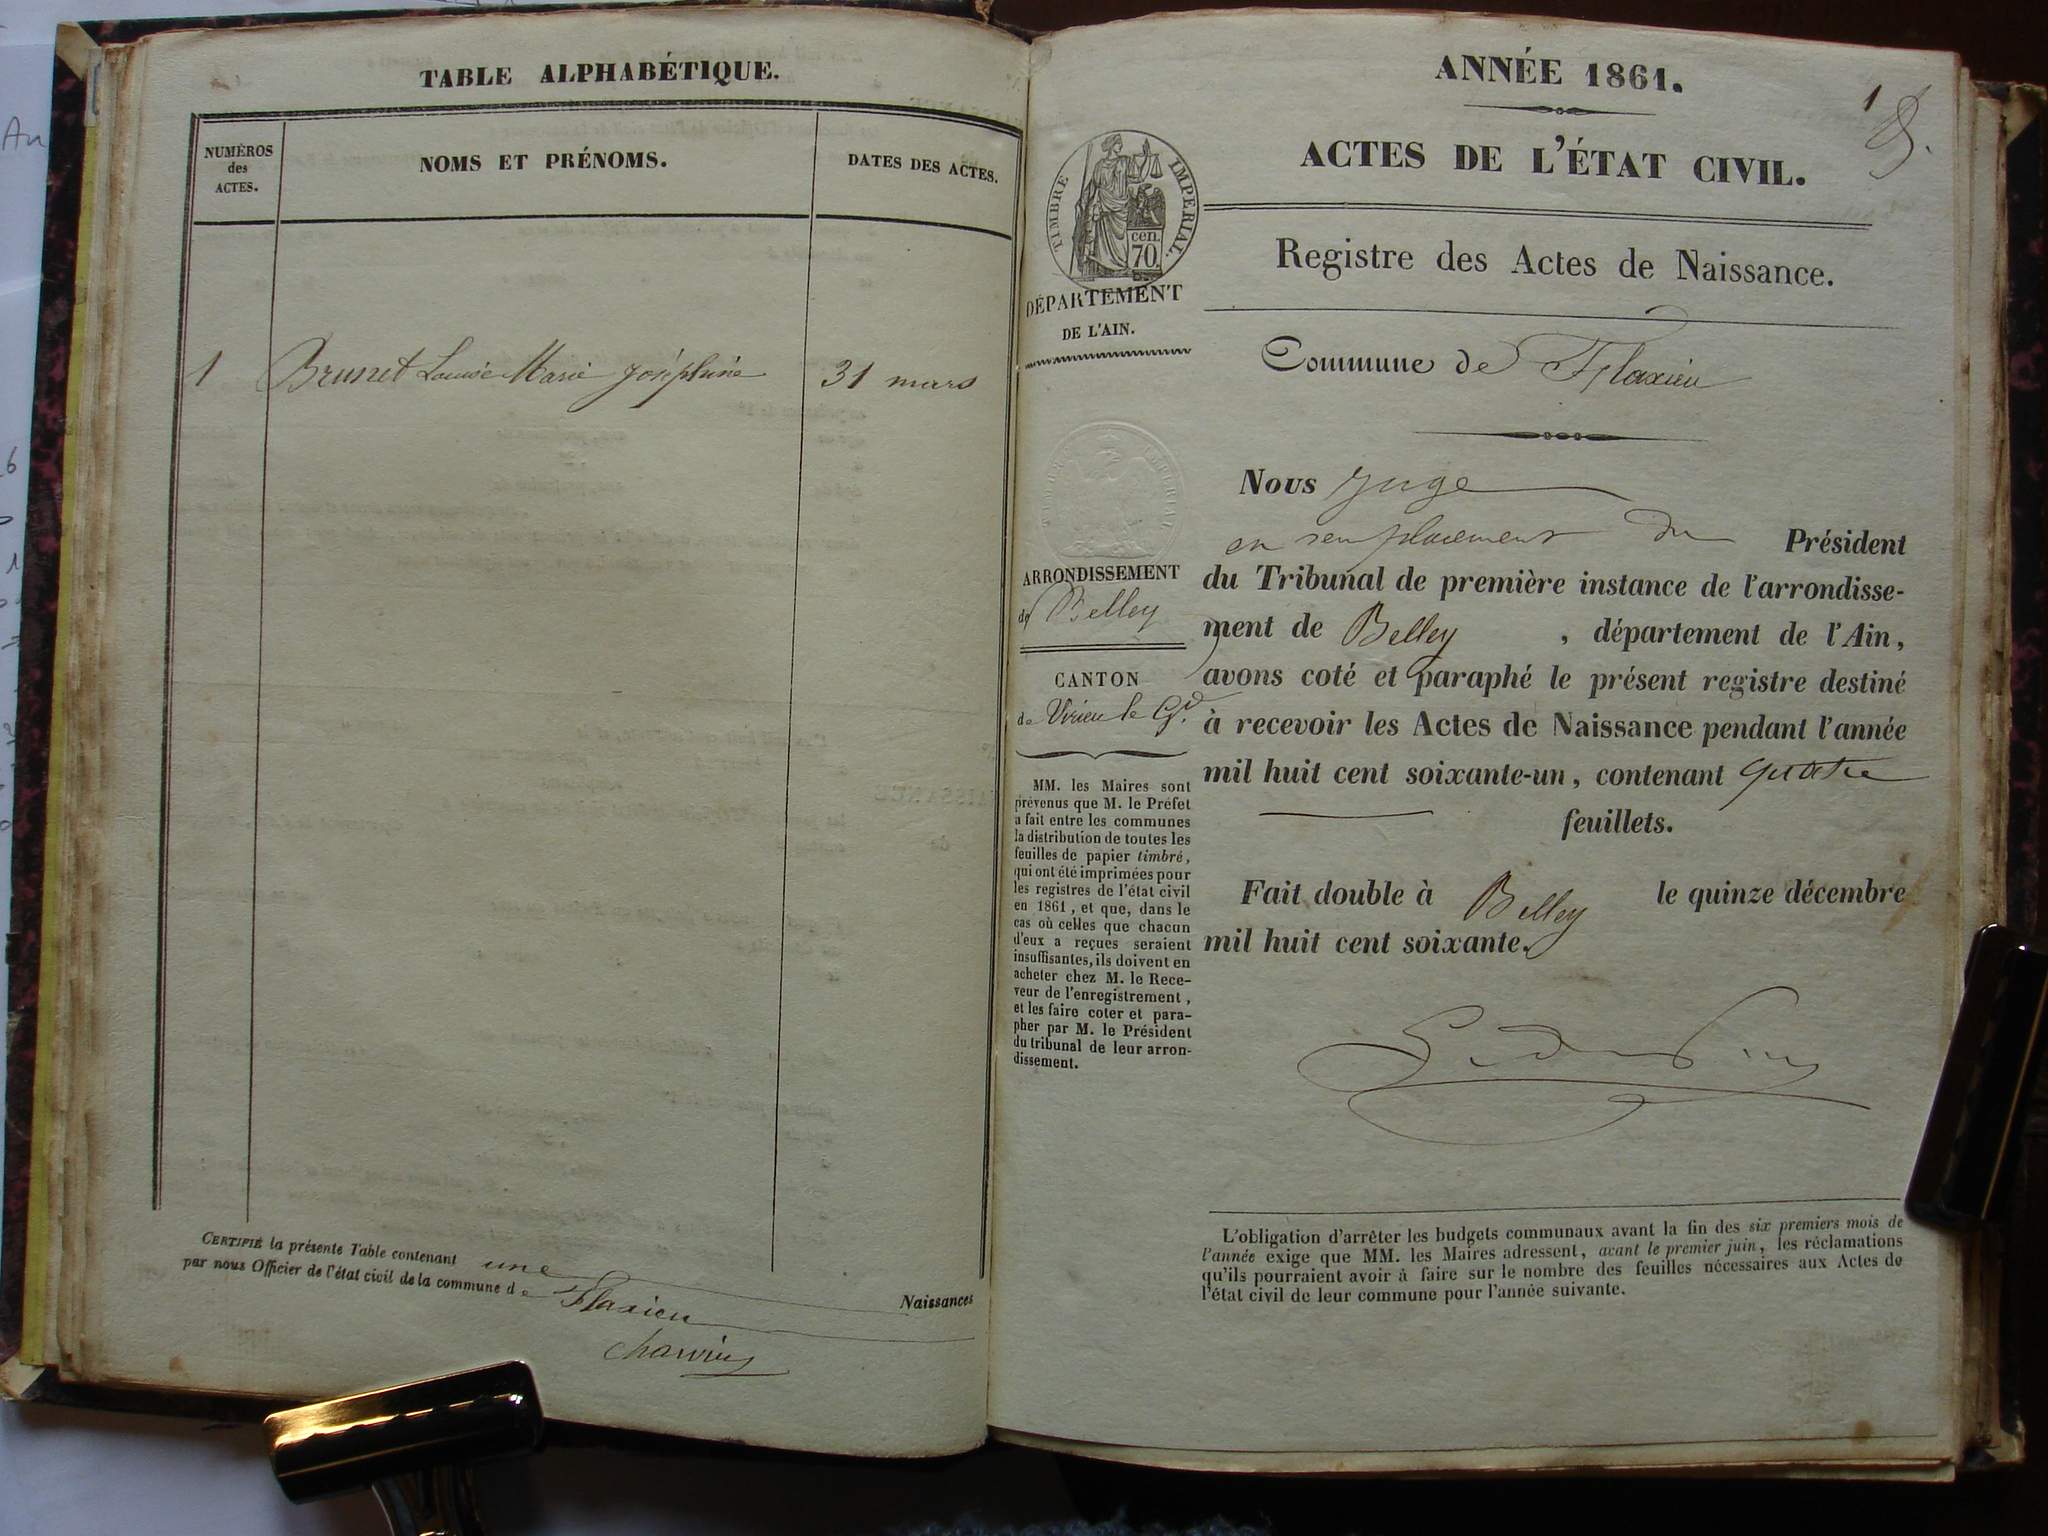 TABLE ALPHABÉTIQUE.
NUMÉROS
des
ACTES.
NOMS ET PRÉNOMS.
DATES DES ACTES.
1 Brunet Louise Marie Joséphine 31 mars
CERTIFIÉ la présente Table contenant une
Naissances
par nous Officier de l'état civil de la commune de Flaxieu
ANNÉE 1861.
1
ACTES DE L'ÉTAT CIVIL.
TIMBRE IMPÉRIAL.
cen.
70.
Registre des Actes de Naissance.
DÉPARTEMENT
DE L'AIN.
Commune de Flaxieu
ARRONDISSEMENT
de Belley
CANTON
de Virieu le Gd
MM. les Maires sont
prévenus que M. le Préfet
a fait entre les communes
la distribution de toutes les
feuilles de papier timbré,
qui ont été imprimées pour
les registres de l'état civil
en 1861, et que, dans le
cas où celles que chacun
d'eux a reçues seraient
insuffisantes, ils doivent en
acheter chez M. le Rece-
veur de l'enregistrement,
et les faire coter et para-
pher par M. le Président
du tribunal de leur arron-
dissement.
Nous juge
en remplacement du Président
du Tribunal de première instance de l'arrondisse-
ment de Belley, département de l'Ain,
avons coté et paraphé le présent registre destiné
à recevoir les Actes de Naissance pendant l'année
mil huit cent soixante-un, contenant quatre
feuillets.
Fait double à Belley le quinze décembre
mil huit cent soixante.
L'obligation d'arrêter les budgets communaux avant la fin des six premiers mois de
l'année exige que MM. les Maires adressent, avant le premier juin, les réclamations
qu'ils pourraient avoir à faire sur le nombre des feuilles nécessaires aux Actes de
l'état civil de leur commune pour l'année suivante.